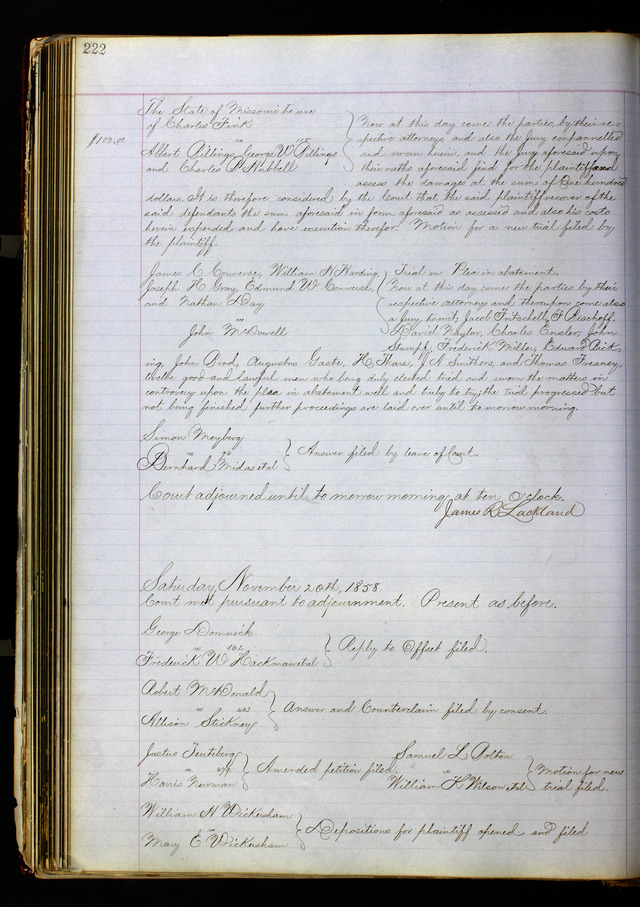 222
The State of Missouri to use
of Charles Fink
$100.00
vs
Albert Pillings George W Pillings
and Charles P Hubbell
Now at this day come the parties, by their re-
spective attorneys and also the Jury empannelled
and sworn herein and the Jury aforesaid upon
their oaths aforesaid find for the plaintiff and
assess the damages at the sum of One hundred
dollars. It is therefore considered by the Court that the said plaintiff recover of the
said defendants the sum aforesaid in form aforesaid as assessed and also his costs
herein expended and have execution therefor. Motion for a new trial filed by
the plaintiff.
James C Converse, William H Harding,
Joseph H Gray, Edmund W Converse,
and Nathan Day
vs
John McDowell
Trial on Plea in abatement.
Now at this day come the parties by their
respective attorneys and thereupon come also
a Jury, towit, Jacob Fritschell, F Bischoff,
David Naylor, Charles Ensler, John
Stumpf, Frederick Miller, Edward Brick-
ing, John Brod, Augustus Gaste, H Thare, A Smithers, and Thomas Treacey,
twelve good and lawful men who being duly elected tried and sworn the matters in
controversy upon the plea in abatement well and truly to try, the trial progressed but
not being finished further proceedings are laid over until to morrow morning.
Simon Moyberg
vs
Bernhard Midas et al
Answer filed by leave of Court.
Court adjourned until to morrow morning at ten O'clock.
James R Lackland
Saturday, November 20th, 1858
Court met pursuant to adjournment. Present as before.
George Domnick
vs
Frederick W Hackman et al
Reply to Offset filed.
Robert McDonald
vs
Allison Stickney
Answer and Counterclaim filed by consent.
Justus Teuteberg
vs
Harris Newman
Amended petition filed.
Samuel L Bolton
vs
William H Wilson et al
Motion for new
trial filed.
William N Wickersham
vs
Mary E Wickersham
Depositions for plaintiff opened and filed